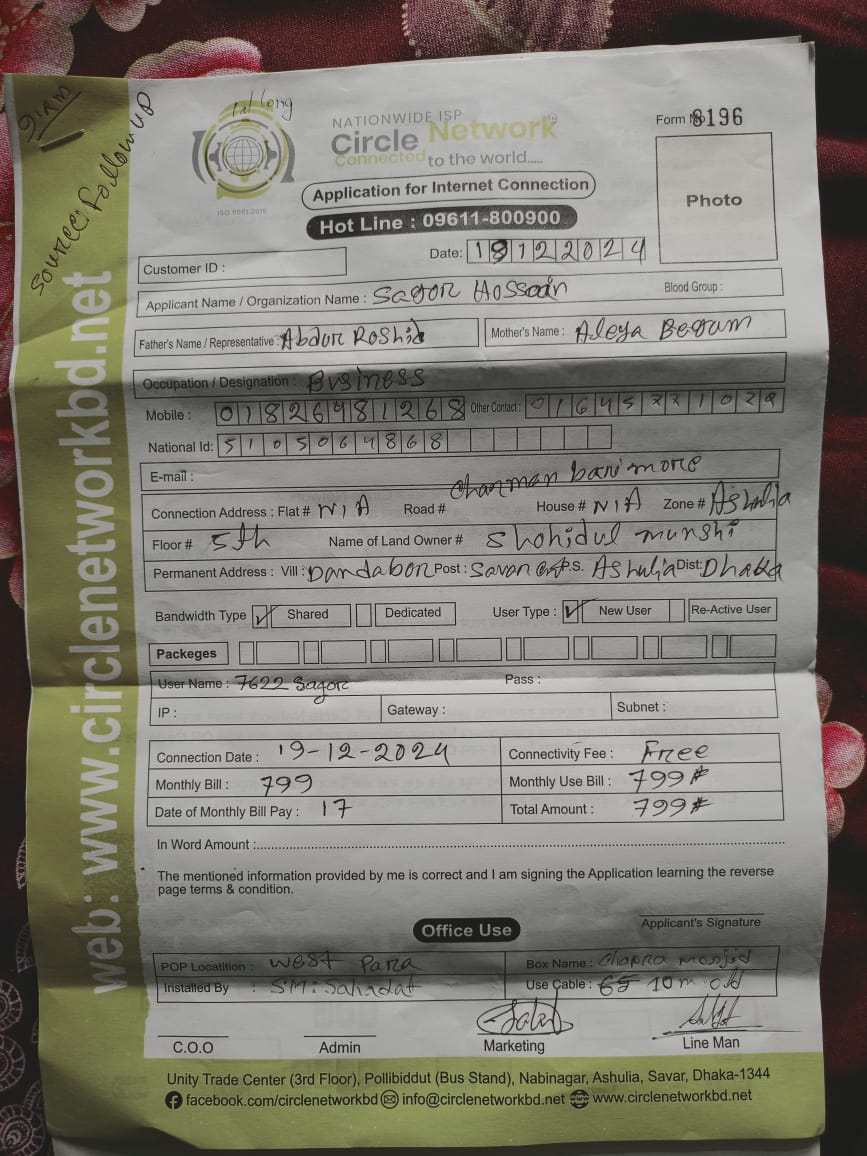 9:AM
Source: Follow up
NATIONWIDE ISP
Circle Network®
Connected to the world.....
ISO 9001:2015
Form No 8196
Application for Internet Connection
Photo
Hot Line : 09611-800900
Date: 18122024
Customer ID :
Applicant Name / Organization Name : Sagor Hossain Blood Group :
Father's Name / Representative : Abdur Roshid Mother's Name : Aleya Begum
Occupation / Designation : Business
Mobile : 01826481268 Other Contact : 01645221029
National Id: 5105064868
E-mail :
Connection Address : Flat # N/A Road # charman bari more House # N/A Zone # Ashulia
Floor # 5th Name of Land Owner # Shohidul munshi
Permanent Address : Vill : Dandabor Post : Savar P.S. Ashulia Dist: Dhaka
Bandwidth Type ✓ Shared Dedicated User Type : ✓ New User Re-Active User
Packeges
User Name : 7622 Sagor Pass :
IP : Gateway : Subnet :
Connection Date : 19-12-2024 Connectivity Fee : Free
Monthly Bill : 799 Monthly Use Bill : 799
Date of Monthly Bill Pay : 17 Total Amount : 799
In Word Amount :
The mentioned information provided by me is correct and I am signing the Application learning the reverse
page terms & condition.
Applicant's Signature
Office Use
POP Locatition : West Para Box Name : masjid
Installed By : S.M: Sahadat Use Cable : 10m old
C.O.O Admin Marketing Line Man
Unity Trade Center (3rd Floor), Pollibiddut (Bus Stand), Nabinagar, Ashulia, Savar, Dhaka-1344
facebook.com/circlenetworkbd info@circlenetworkbd.net www.circlenetworkbd.net
web: www.circlenetworkbd.net